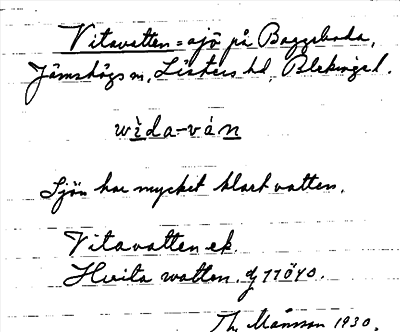 Vitavatten = sjö på Baggeboda,
Jämshögs sn, Listers hd, Blekinge l.
wìda-ván
Sjön har mycket klart vatten.
Vitavatten ek.
Hvita watten.
Th. Månsson 1930.